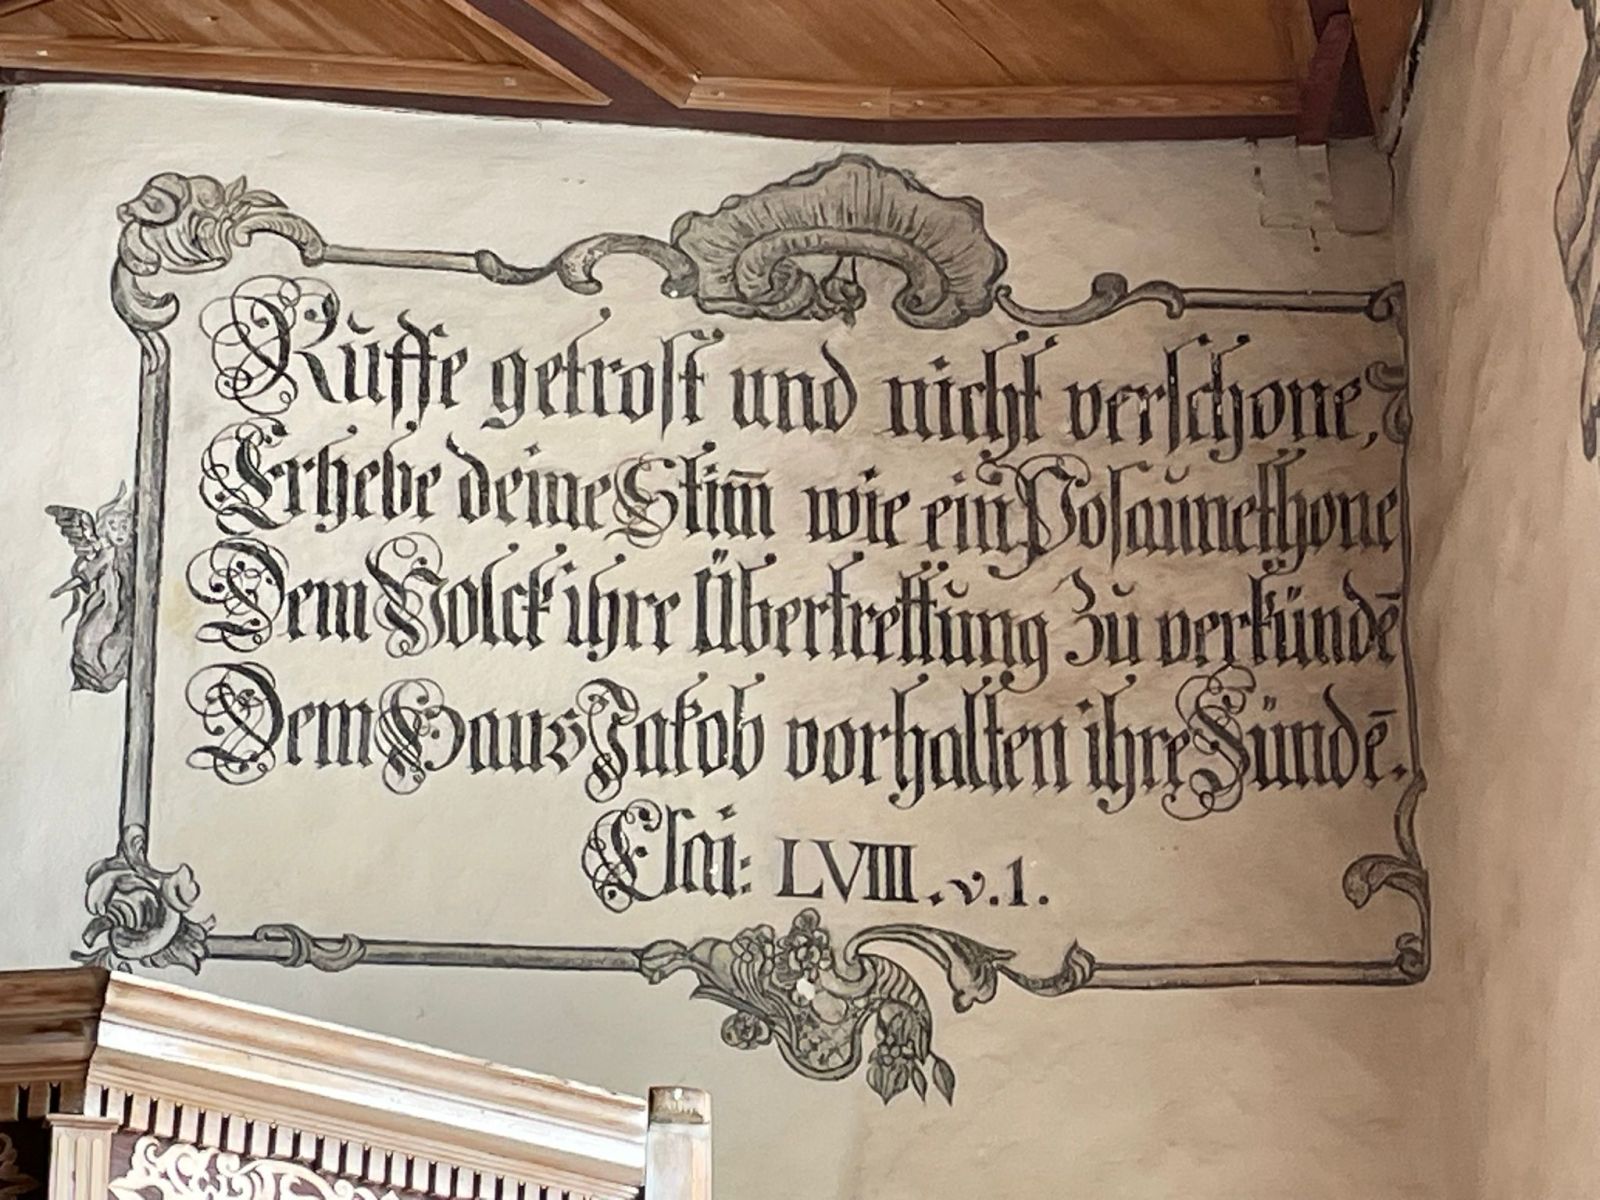 Rŭffe getrost und nicht verschone,
Erhebe deine Stim̅ wie ein Posaŭnethone
Dem Volck ihre Übertrettŭng Zŭ verkündē
Dem Haus Jakob vorhalten ihre Sündē.
Esai: LVIII. v. 1.